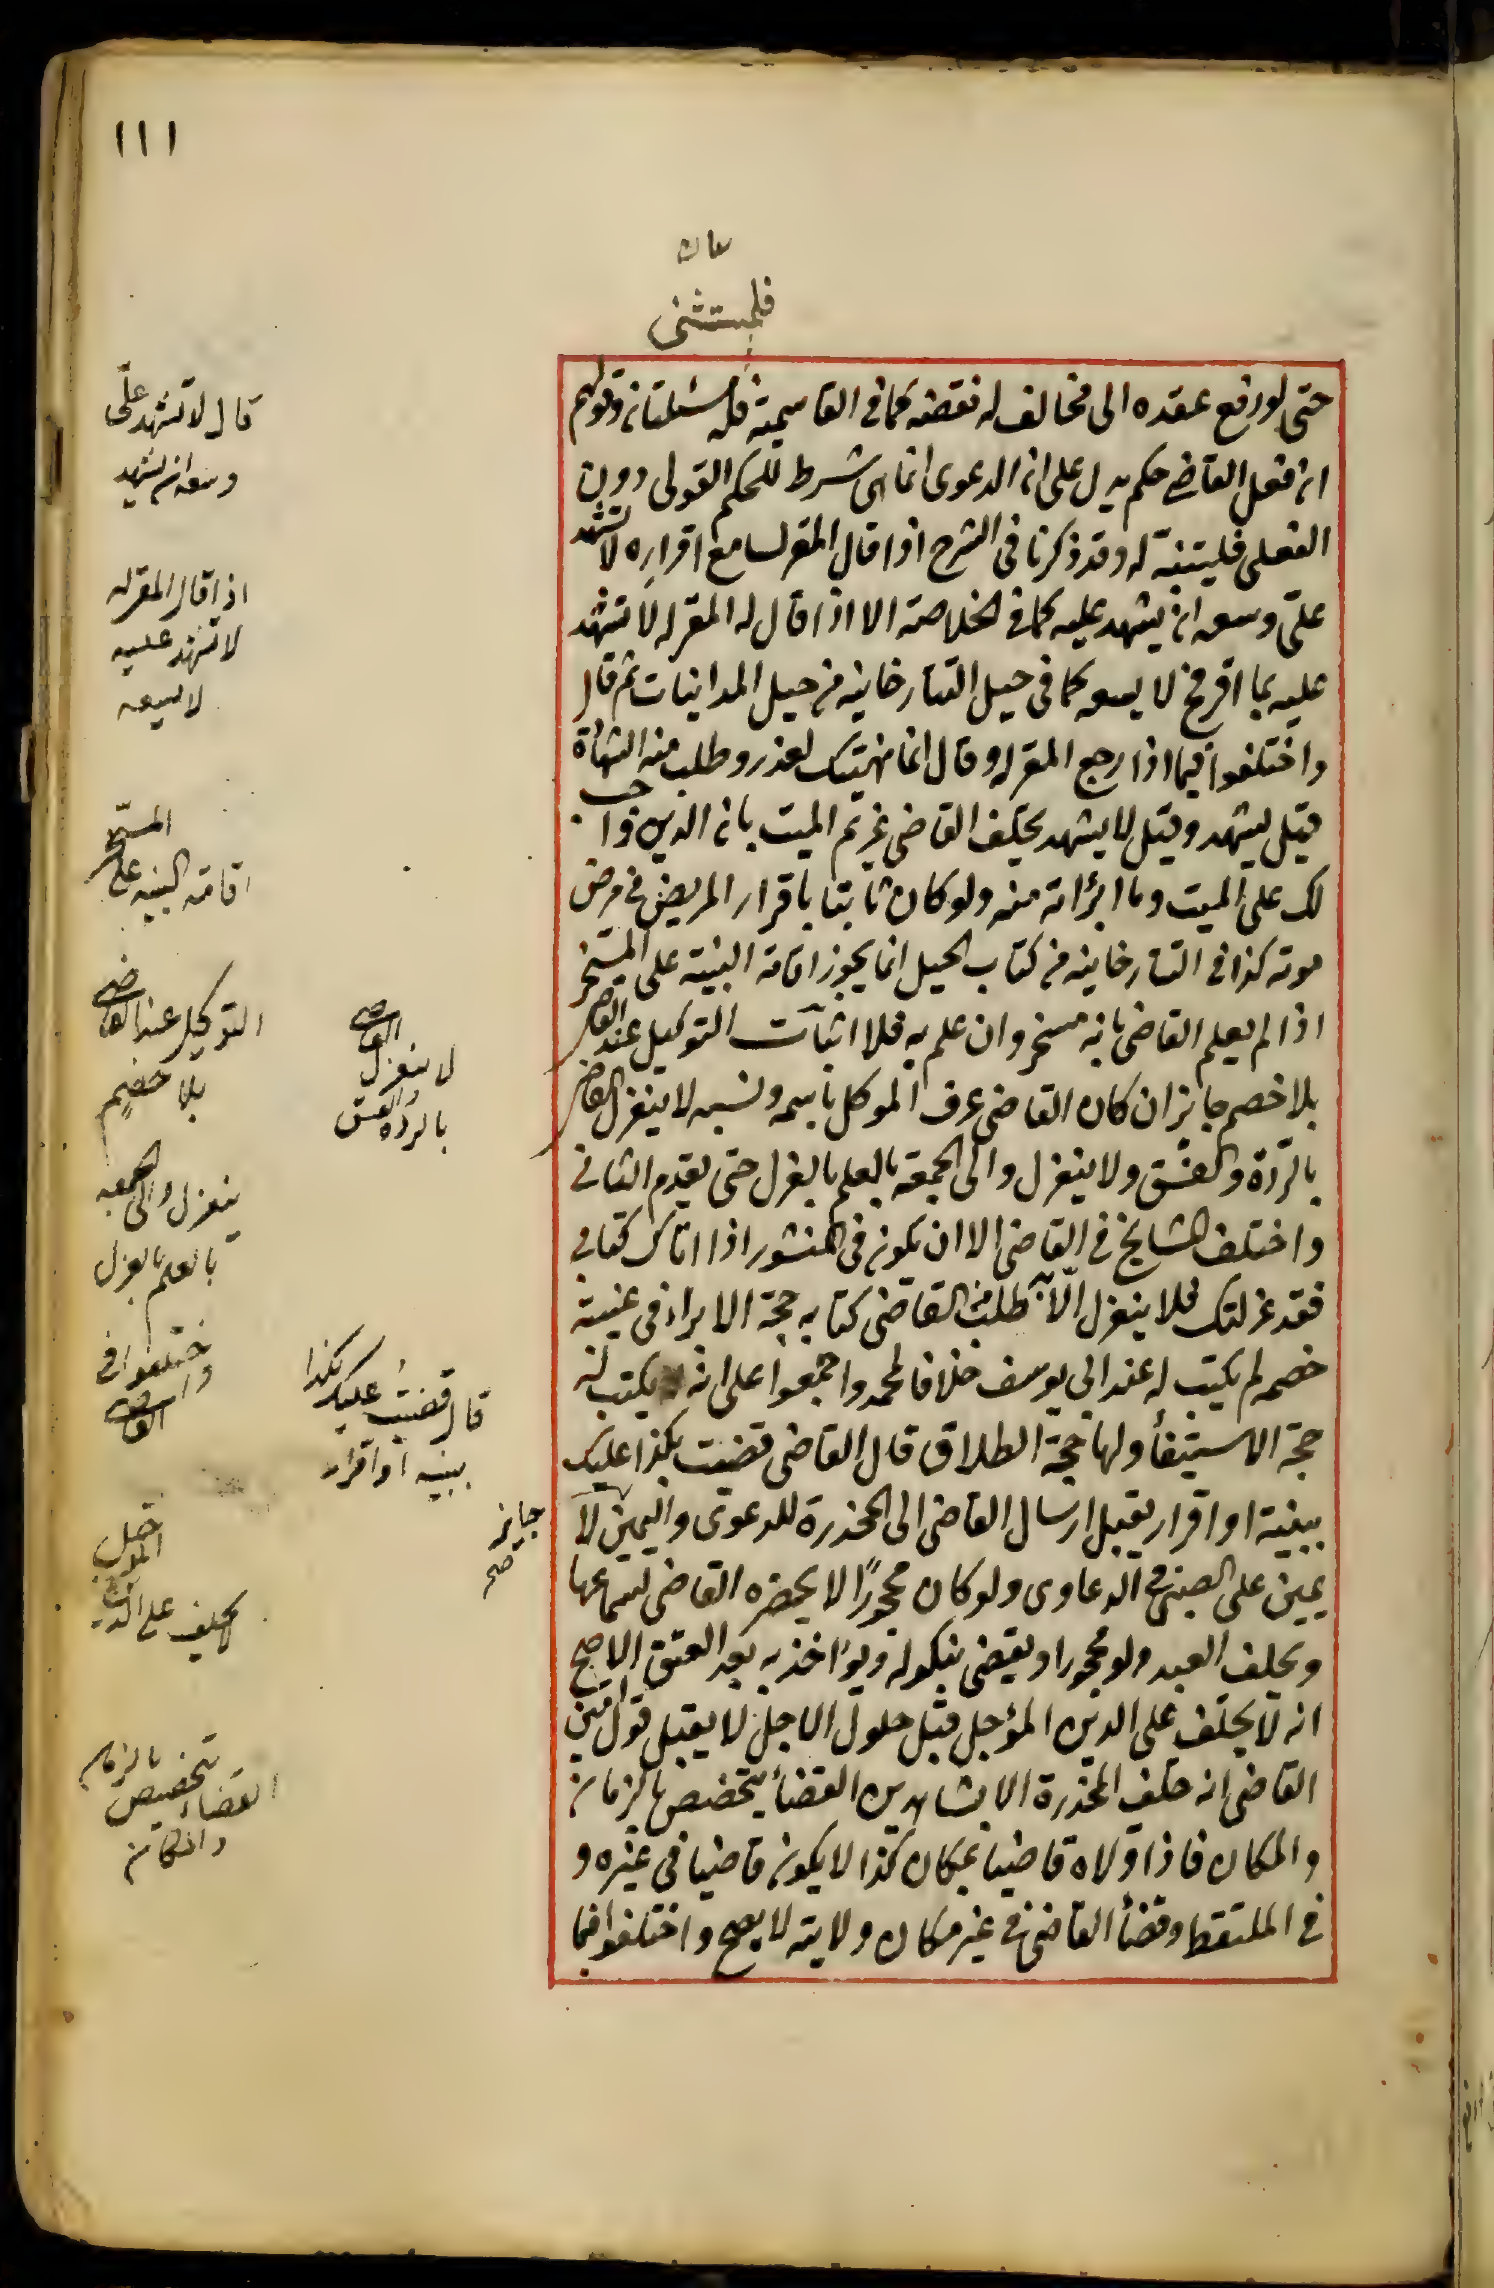 ١١١
فليستثنى
حتى لو رفع عقده الى مخالف له نقضه كما فى القاسمية فله مسئلتان وقولهم
ان فعل القاضى حكم يدل على ان الدعوى انما هى شرط للحكم القولى دون
الفعلى فليتنبه له وقد ذكرنا فى الشرح اذا قال المقر لسامع اقراره لا تشهد
علىّ وسعه ان يشهد عليه كما فى الخلاصة الا اذا قال له المقر له لا تشهد
عليه بما اقر فح لا يسعه كما فى حيل التتارخانيه من حيل المداينات ثم قال
واختلفوا فيما اذا رجع المقر له وقال انما نهيتك لعذر وطلب منه الشهادة
قيل يشهد وقيل لا يشهد يحلف القاضى غريم الميت بان الدين واجب
لك على الميت وما ابرأته منه ولو كان ثابتا باقرار المريض فى مرض
موته كذا فى التتارخانيه من كتاب الحيل انما يجوز اقامة البينة على المسخر
اذا لم يعلم القاضى بانه مسخر وان علم به فلا اثبات التوكيل عند القاضى
بلا خصم جايز ان كان القاضى عرف الموكل باسمه ونسبه لا ينعزل القاضى
بالردّة والفسق ولا ينعزل والى الجمعة بالعلم بالعزل حتى يقدم الثانى
واختلف المشايخ فى القاضى الا ان يكون فى المنشور اذا اتاك كتابى
فقد عزلتك فلا ينعزل الّا به طلب من القاضى كتابه حجة الابراء فى غيبة
خصمه لم يكتب له عند ابى يوسف خلافا لمحمد واجمعوا على انه يكتب له
حجة الاستيفأ ولها حجة الطلاق قال القاضى قضيت بكذا عليك
ببينة او اقرار يقبل ارسال القاضى الى المخدرة للدعوى واليمين لا
يمين على الصبى فى الدعاوى ولو كان محجورًا لا يحضره القاضى لسماعها
ويحلف العبد ولو محجورا ويقضى بنكوله ويؤاخذ به بعد العتق الاصح
انه لا يحلف على الدين المؤجل قبل حلول الاجل لا يقبل قول امين
القاضى انه حلف المخدرة الا بشاهدين القضأ يتخصص بالزمان
والمكان فاذا ولاه قاضيا بمكان كذا لا يكون قاضيا فى غيره و
فى الملتقط وقضأ القاضى فى غير مكان ولايته لا يصح واختلفوا فيما
قال لا تشهد علىّ
وسعه ان يشهد
اذا قال المقر له
لا تشهد عليه
لا يسعه
المسخر
اقامة البينه على
التوكيل عند القاضى
بلا خصم
القاضى
لا ينعزل
بالردة والفسق
ينعزل والى الجمعه
بالعلم بالعزل
واختلفوا فى
القاضى
قال قضيت عليك بكذا
ببينه او اقرار
جايز
صح
لا يحلف على الدين
المؤجل
القضاء يتخصيص بالزمان
والمكان